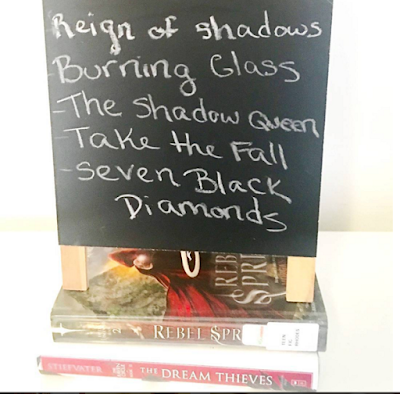 Reign of shadows
-Burning Glass
-The Shadow Queen
-Take the Fall
-seven Black
Diamonds
REB
SPRI
REBEL SPR
STIEFVATER THE DREAM THIEVES